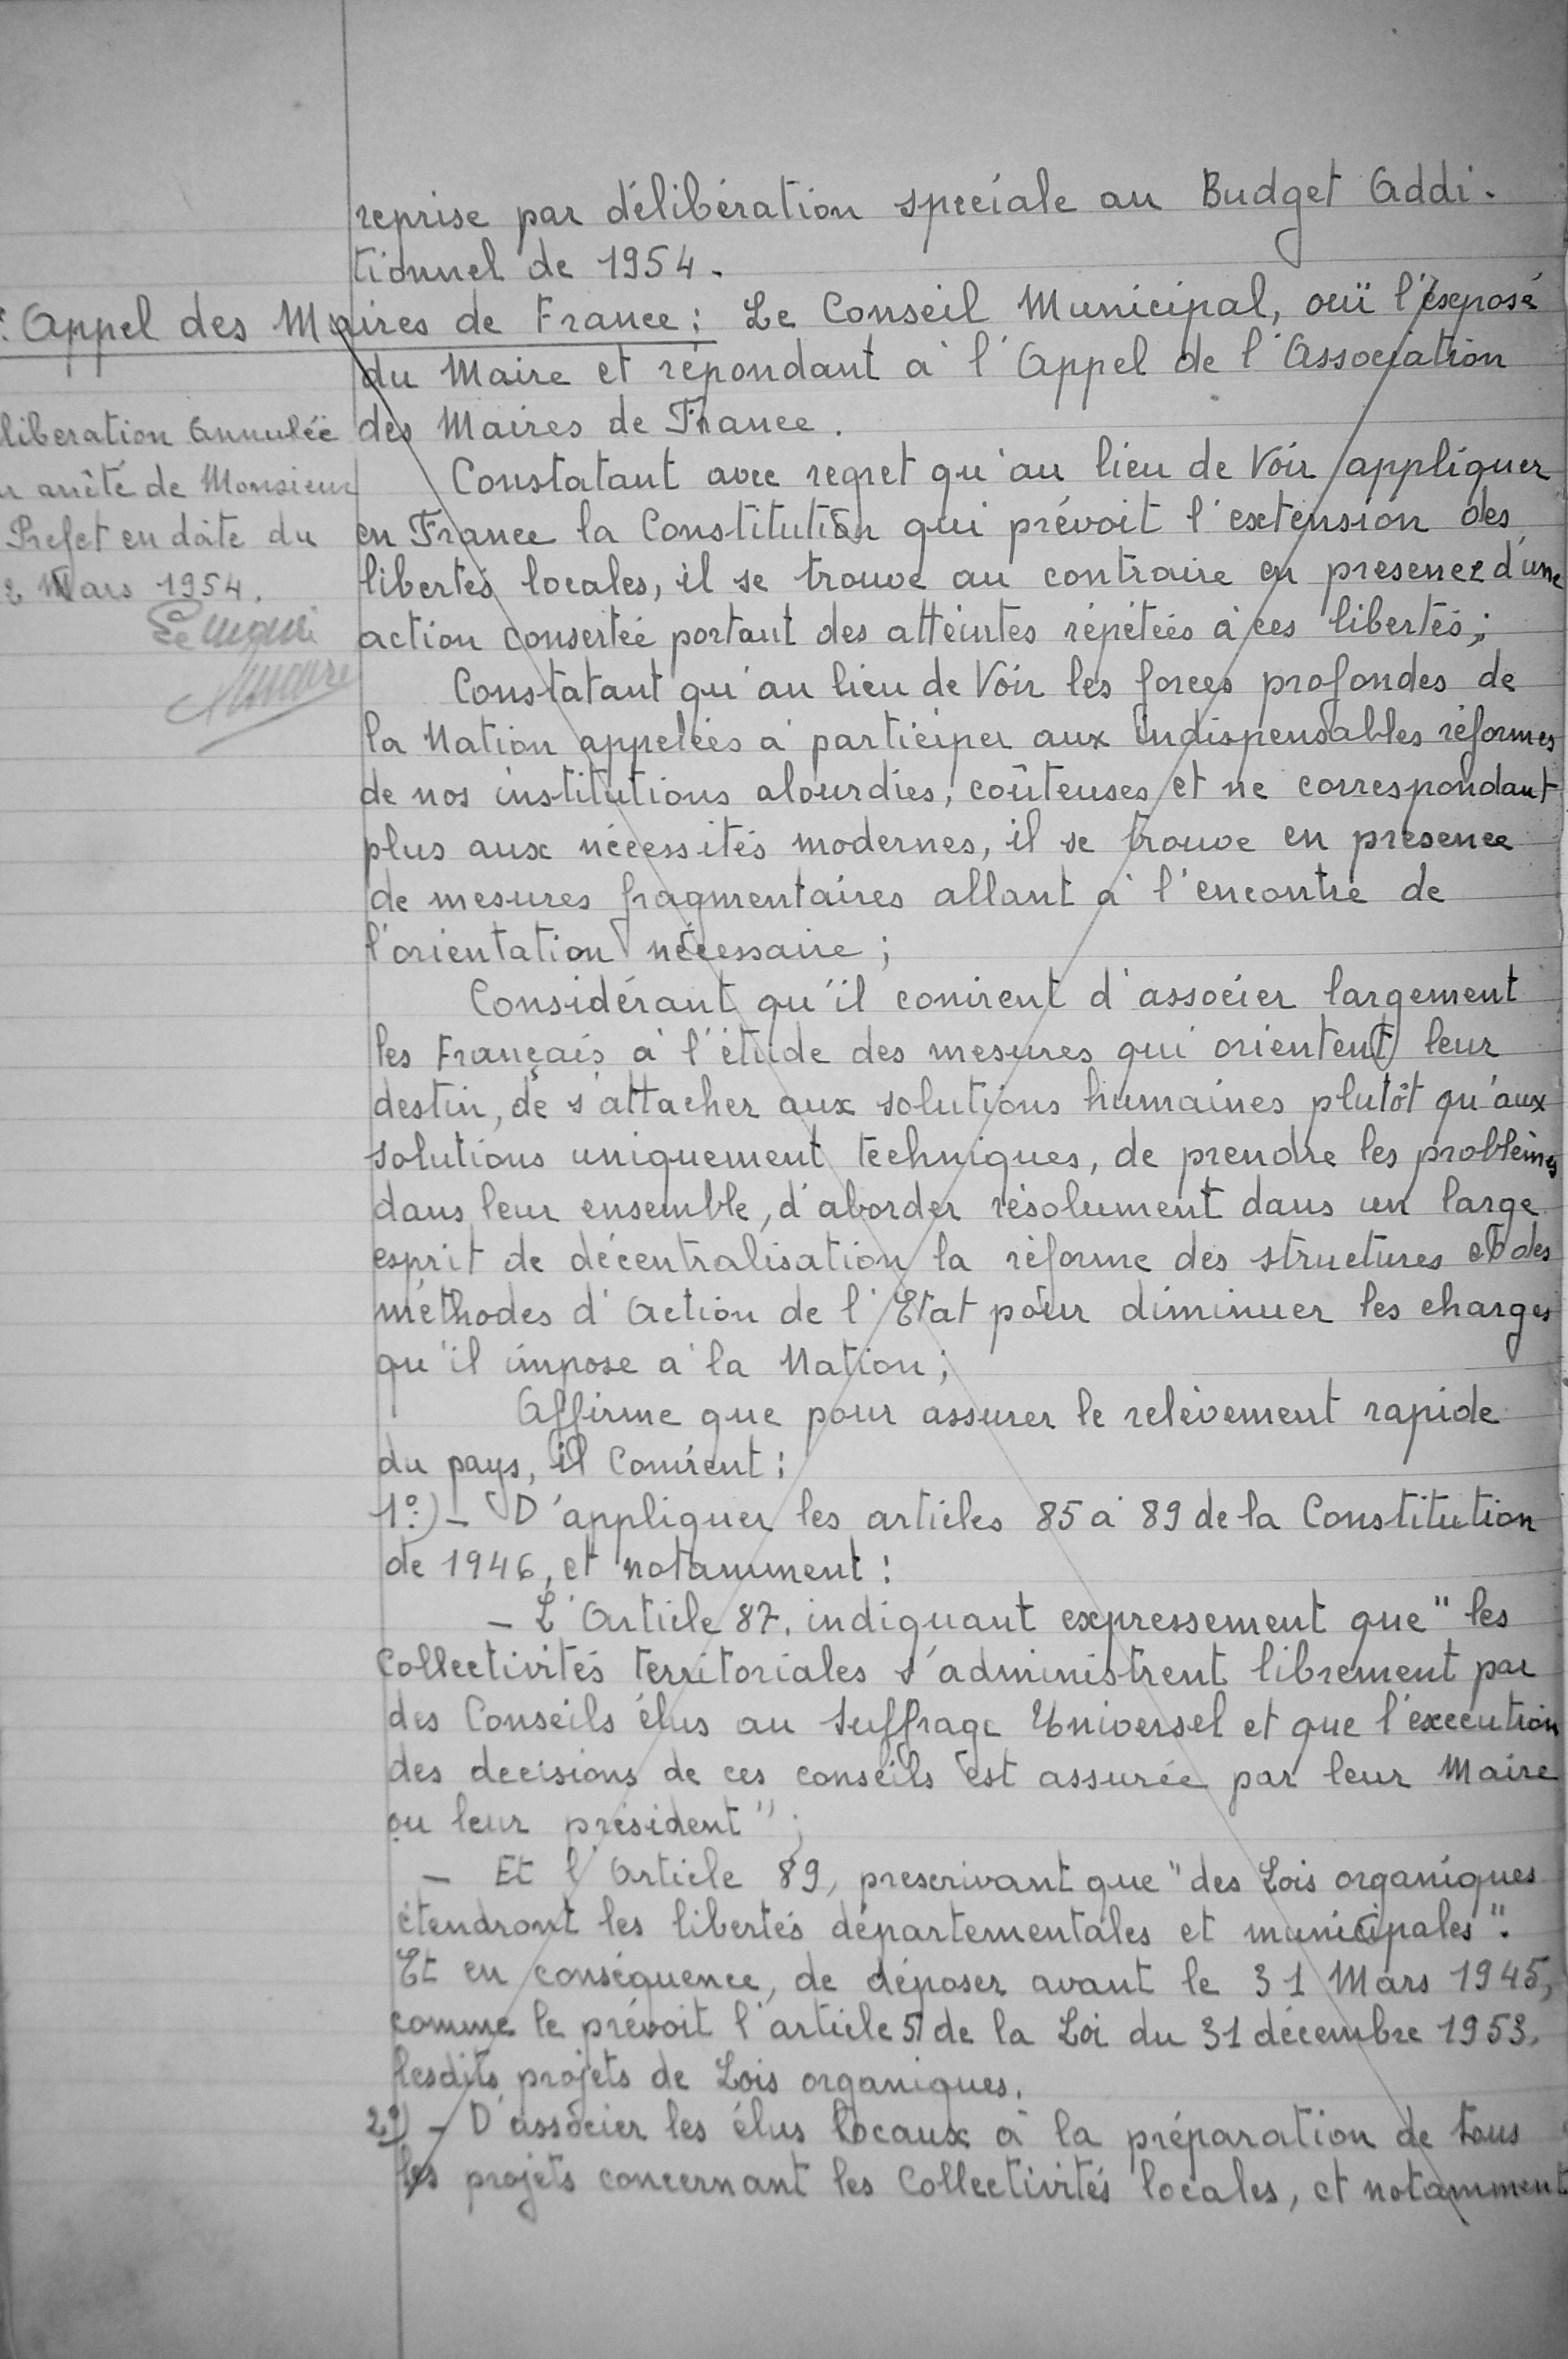 reprise par délibération spéciale au Budget Addi-
tionnel de 1954.
Appel des Maires de France : Le Conseil Municipal, ouï l'exposé
du Maire et répondant à l'Appel de l'Association
des Maires de France.
Constatant avec regret qu'au lieu de Voir appliquer
en France la Constitution qui prévoit l'extension des
libertés locales, il se trouve au contraire en présence d'une
action consertée portant des atteintes répétées à ces libertés ;
Constatant qu'au lieu de Voir les forces profondes de
la Nation appelées à participer aux indispensables réformes
de nos institutions alourdies, coûteuses et ne correspondant
plus aux nécessités modernes, il se trouve en présence
de mesures fragmentaires allant à l'encontre de
l'orientation nécessaire ;
Considérant qu'il convient d'associer largement
les Français à l'étude des mesures qui orientent leur
destin, de s'attacher aux solutions humaines plutôt qu'aux
solutions uniquement techniques, de prendre les problèmes
dans leur ensemble, d'aborder résolument dans un large
esprit de décentralisation la réforme des structures et des
méthodes d'Action de l'Etat pour diminuer les charges
qu'il impose à la Nation ;
Affirme que pour assurer le relèvement rapide
du pays, il Convient :
1°) - D'appliquer les articles 85 à 89 de la Constitution
de 1946, et notamment :
- L'Article 87, indiquant expressement que " les
Collectivités territoriales s'administrent librement par
des Conseils élus au Suffrage Universel et que l'exécution
des decisions de ces conseils est assurée par leur Maire
ou leur président " ;
- Et l'Article 89, prescrivant que " des Lois organiques
étendront les libertés départementales et municipales ".
Et en conséquence, de déposer avant le 31 Mars 1945,
comme le prévoit l'article 5 de la Loi du 31 décembre 1953,
lesdits projets de Lois organiques.
2°) - D'associer les élus locaux à la préparation de tous
les projets concernant les Collectivités locales, et notamment
libération Annulée
arrêté de Monsieur
Préfet en date du
2 Mars 1954.